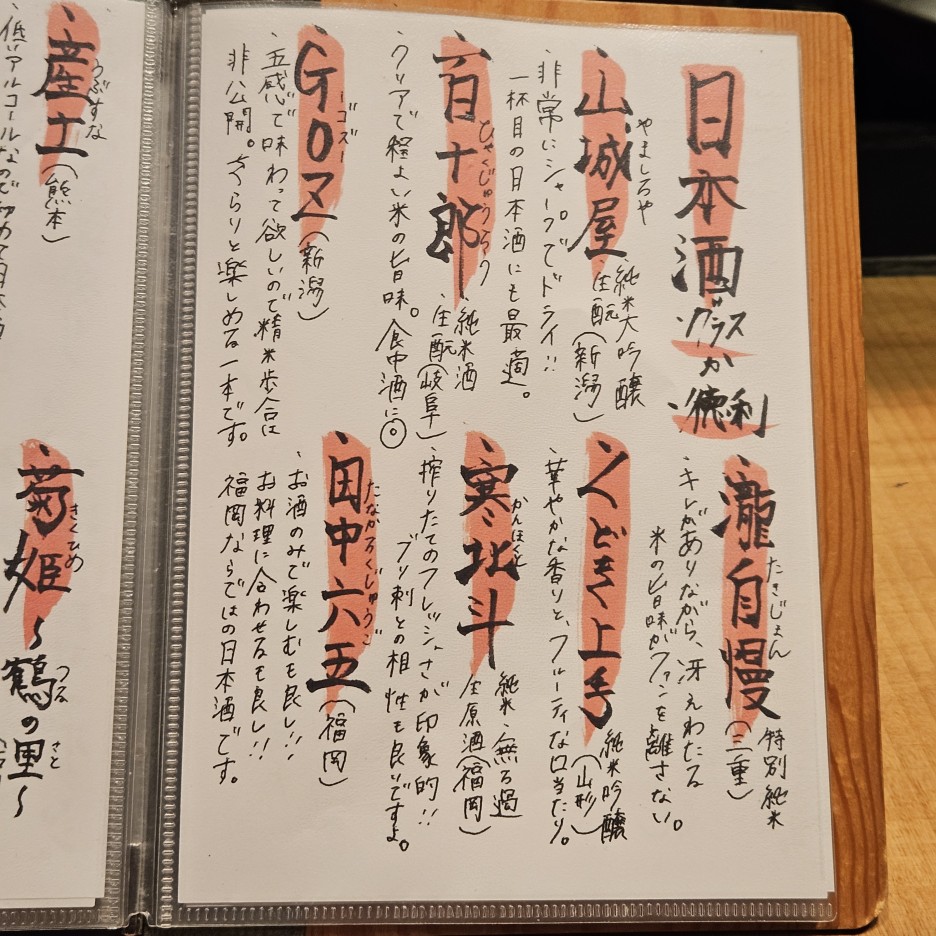 日本酒
グラスか徳利
山城屋
やましろや
純米大吟醸
生酛(新潟)
非常にシャープでドライ!!
一杯目の日本酒にも最適。
百十郎
ひゃくじゅうろう
純米酒
生酛(岐阜)
クリアで程よい米の旨味。食中酒に◎
GOZ
ゴズー
(新潟)
五感で味わって欲しいので精米歩合は
非公開。さらりと楽しめる一本です。
瀧自慢
たきじまん
特別純米
(三重)
キレがありながら、冴えわたる
米の旨味がファンを離さない。
くどき上手
純米吟醸
(山形)
華やかな香りと、フルーティな口当たり。
寒北斗
かんほくと
純米・無ろ過
生原酒(福岡)
搾りたてのフレッシュさが印象的!!
ブリ刺との相性も良いですよ。
田中六五
たなかろくじゅうご
(福岡)
お酒のみで楽しむも良し!!
お料理に合わせるも良し!!
福岡ならではの日本酒です。
産土
うぶすな
(熊本)
低いアルコールなので初めて日本
菊姫
きくひめ
~鶴の里~
つる
さと